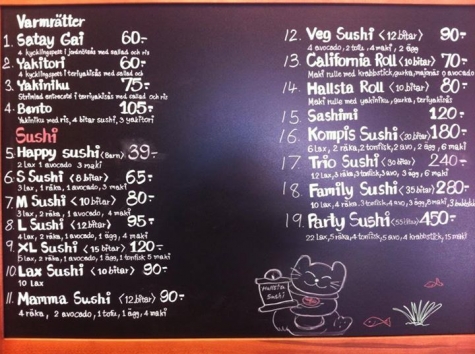 Varmrätter
1. Satay Gai 60:-
4 kycklingspett i jordnötssås med sallad och ris
2. Yakitori 60:-
4 kycklingspett i teriyakisås med sallad och
3. Yakiniku 75:-
Strimlad entrecote i teriyakisås med sallad och ris
4. Bento 105:-
Yakiniku med ris, 4 bitar sushi, 3 yakitori
Sushi
5. Happy sushi (Barn) 39:-
2 lax 1 avocado 3 maki
6. S Sushi <8 bitar> 65:-
3 lax, 1 räka, 1 avocado, 3 maki
7. M Sushi <10 bitar> 80:-
3 lax, 2 räka, 1 avocado, 4 maki
8. L Sushi <12 bitar> 95:-
4 lax, 2 räka, 1 avocado, 1 ägg, 4 maki
9. XL Sushi <15 bitar> 120:-
5 lax, 2 räka, 1 avocado, 1 ägg, 1 tonfisk 5 maki
10. Lax Sushi <10 bitar> 90:-
10 Lax
11. Mamma Sushi <12 bitar> 90:-
4 räka, 2 avocado, 1 tofu, 1 ägg, 4 maki
12. Veg Sushi <12 bitar> 90:-
4 avocado, 2 tofu, 4 maki, 2 ägg
13. California Roll <10 bitar> 70:-
Maki rulle med krabbstick, gurka, majonäs o avocado
14. Hallsta Roll <10 bitar> 80:-
Maki rulle med yakiniku, gurka, teriyakisås
15. Sashimi 120:-
16. Kompis Sushi <20 bitar> 180:-
6 lax, 2 räka, 2 tonfisk, 2 avo, 2 ägg, 6 maki
17. Trio Sushi <30 bitar> 240:-
12 lax, 3 räka, 3 tonfisk, 3 avo, 3 ägg, 6 maki
18. Family Sushi <35 bitar> 280:-
10 lax, 4 räka, 3 tonfisk, 3 avo, 3 ägg, 8 maki,
19. Party Sushi <55 bitar> 450:-
22 lax, 5 räka, 4 tonfisk, 5 avo, 4 krabbstick, 15 maki
Hallsta
Sushi